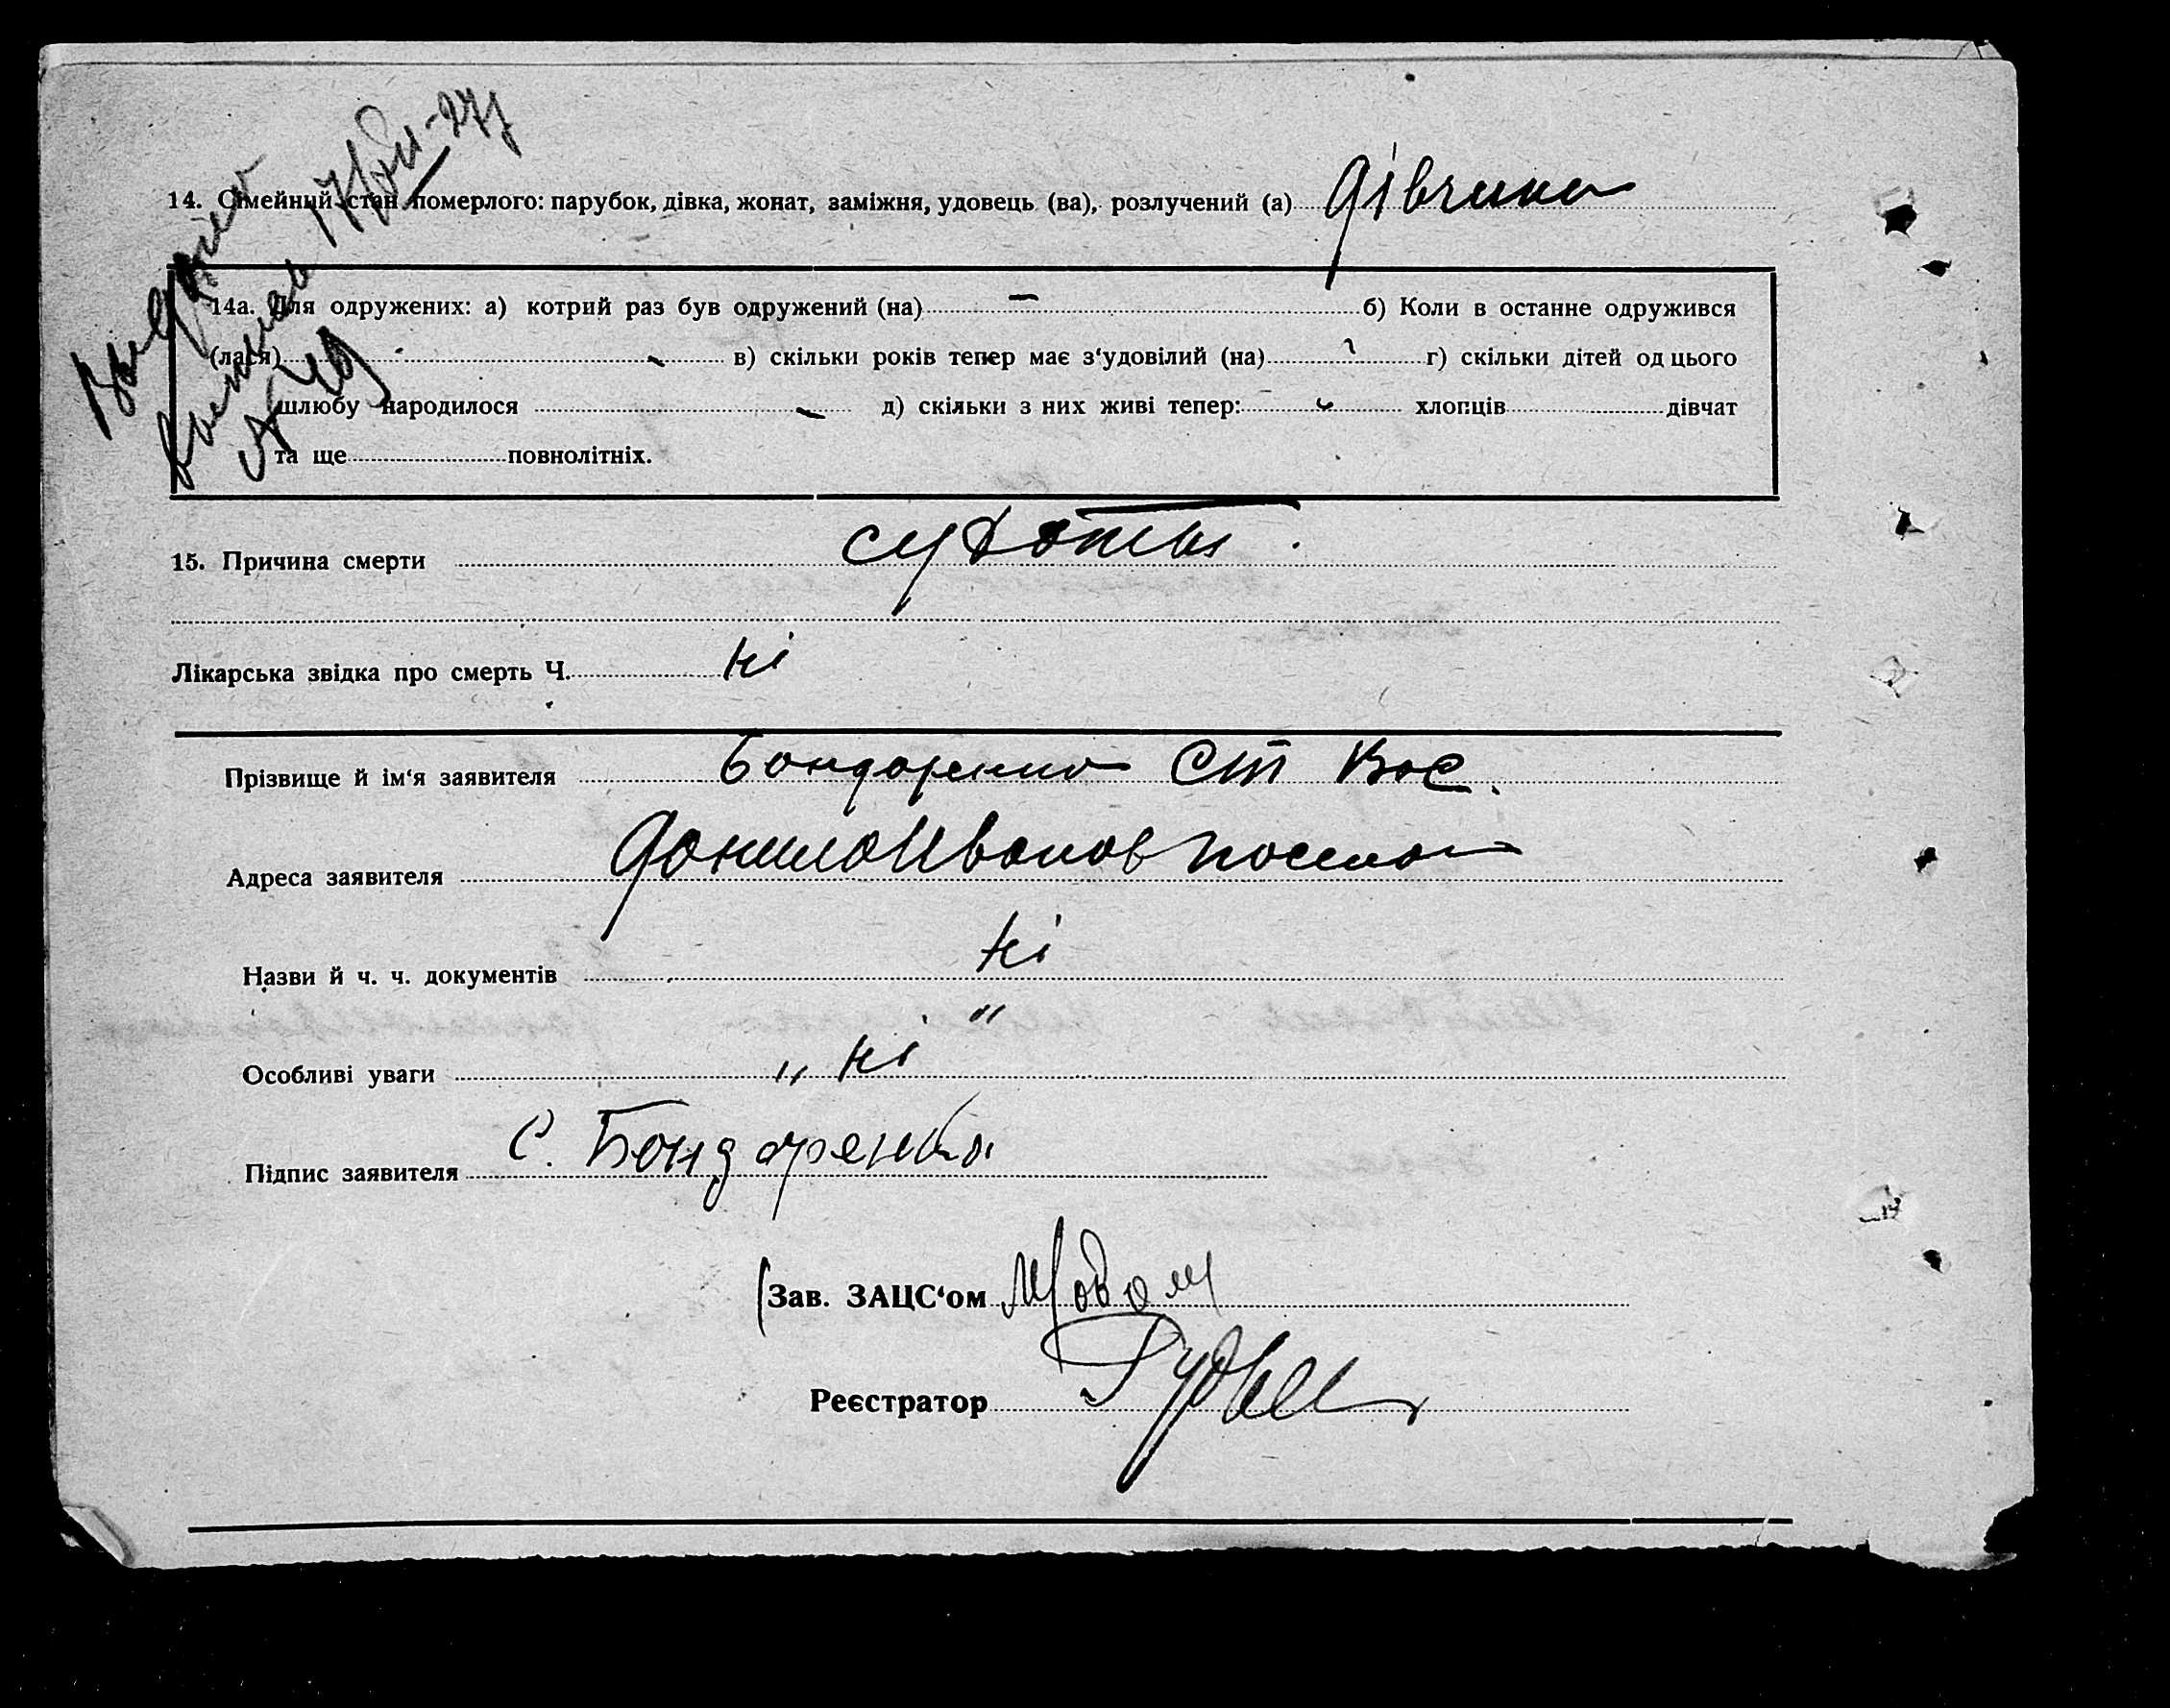 14. Сімейний стан померлого: парубок, дівка, жонат, заміжня, удовець (ва), розлучений (а) дівчина
14а. Для одружених: а) котрий раз був одружений (на) — б) Коли в останне одружився
(лася) в) скільки років тепер має з‘удовілий (на) г) скільки дітей од цього
шлюбу народилося д) скільки з них живі тепер: хлопців дівчат
та ще повнолітніх.
15. Причина смерти
Лікарська звідка про смерть Ч. ні
Прізвище й ім‘я заявителя Бондаренко Ст Вас.
Адреса заявителя
Назви й ч. ч. документів ні
Особливі уваги „ ні "
Підпис заявителя С. Бондаренко
Зав. ЗАЦС‘ом
Реєстратор